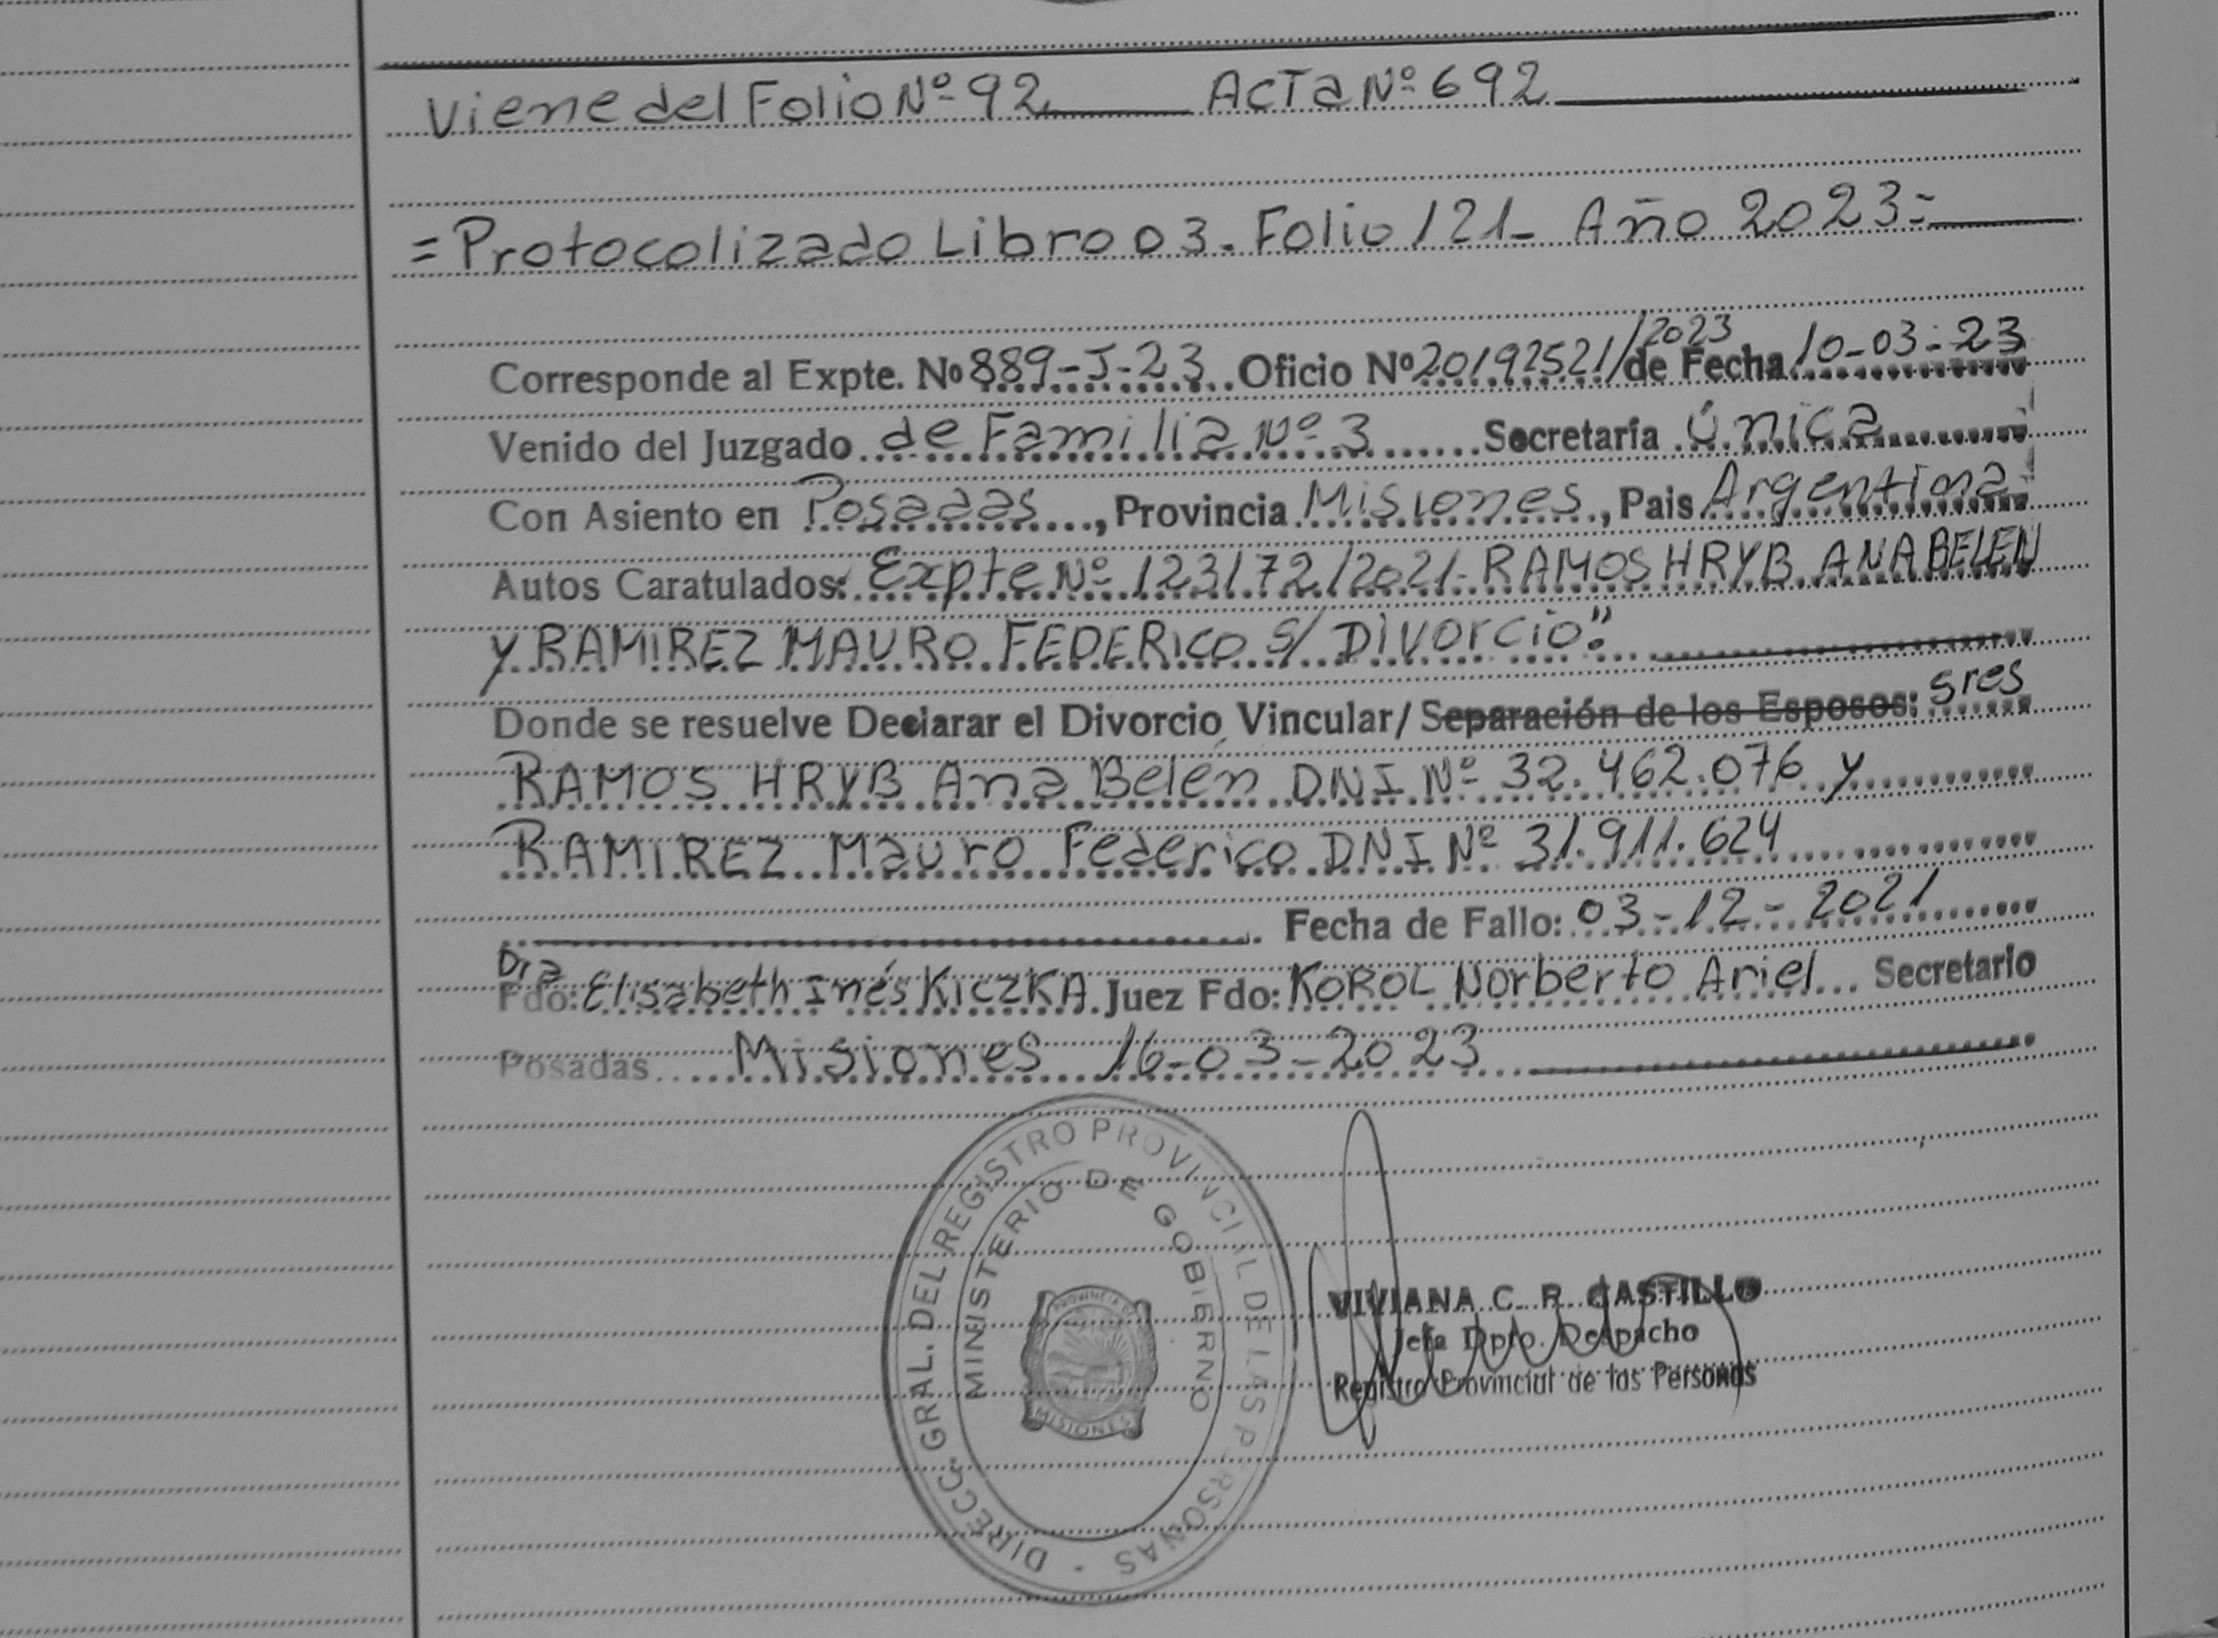 Viene del Folio Nº 92 Acta Nº 692
= Protocolizado Libro 03. Folio 121 - Año 2023=
Corresponde al Expte. Nº 889-J-23 Oficio Nº 20192521/2023 de Fecha 10-03-23
Venido del Juzgado de Familia Nº 3 Secretaría única
Con Asiento en Posadas, Provincia Misiones, Pais Argentina
Autos Caratulados: Expte Nº 123172/2021- RAMOS HRYB ANA BELEN
y RAMIREZ MAURO FEDERICO S/ Divorcio".
Donde se resuelve Declarar el Divorcio Vincular/ Separación de los Esposos: sres
RAMOS HRYB Ana Belén DNI Nº 32.462.076 y
RAMIREZ Mauro Federico DNI Nº 31.911.624
Fecha de Fallo: 03-12-2021
Dra
Fdo: Elisabeth Inés KICZKA Juez Fdo: KOROL Norberto Ariel Secretario
Posadas Misiones 16-03-2023
DIRECC. GRAL. DEL REGISTRO PROVINCIAL DE LAS PERSONAS
MINISTERIO DE GOBIERNO
PROVINCIA DE
MISIONES
VIVIANA C. R. CASTILLO
Jefa Dpto. Despacho
Registro Provincial de las Personas